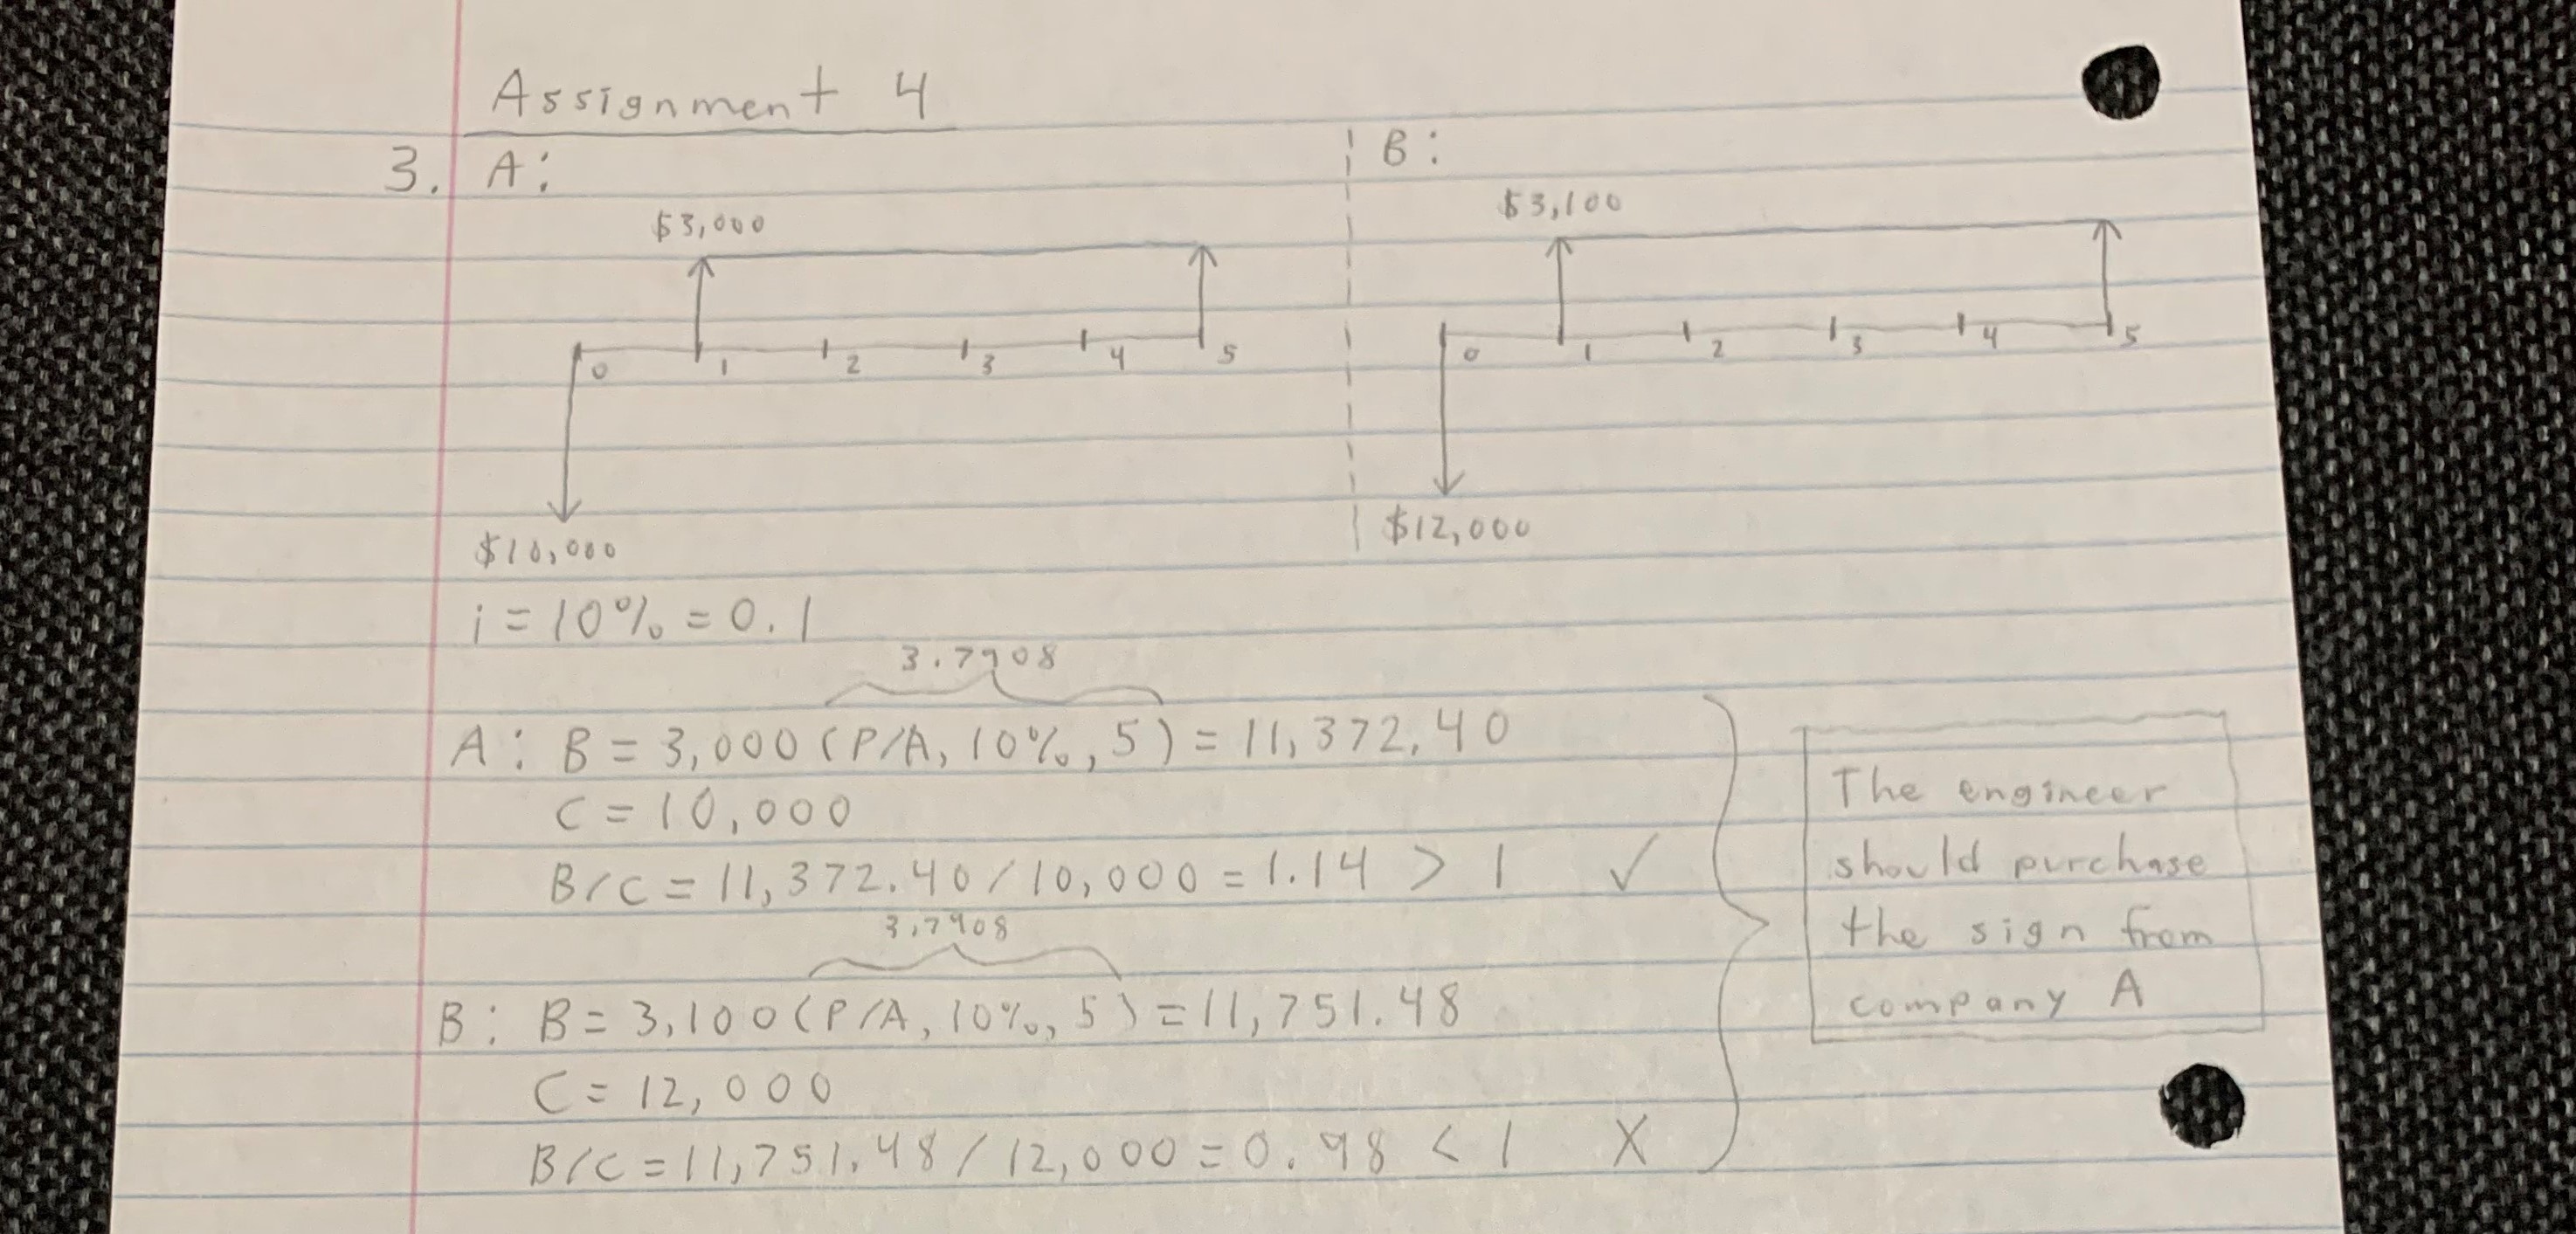 Assignment 4
3. A:
B:
$3,000
$3,100
0 1 2 3 4 5
0 1 2 3 4 5
$10,000
$12,000
i = 10% = 0.1
3.7908
A: B = 3,000 (P/A, 10%, 5) = 11,372.40
C = 10,000
B/C = 11,372.40 / 10,000 = 1.14 > 1 ✓
3.7908
B: B = 3,100 (P/A, 10%, 5) = 11,751.48
C = 12,000
B/C = 11,751.48 / 12,000 = 0.98 < 1 X
The engineer
should purchase
the sign from
company A